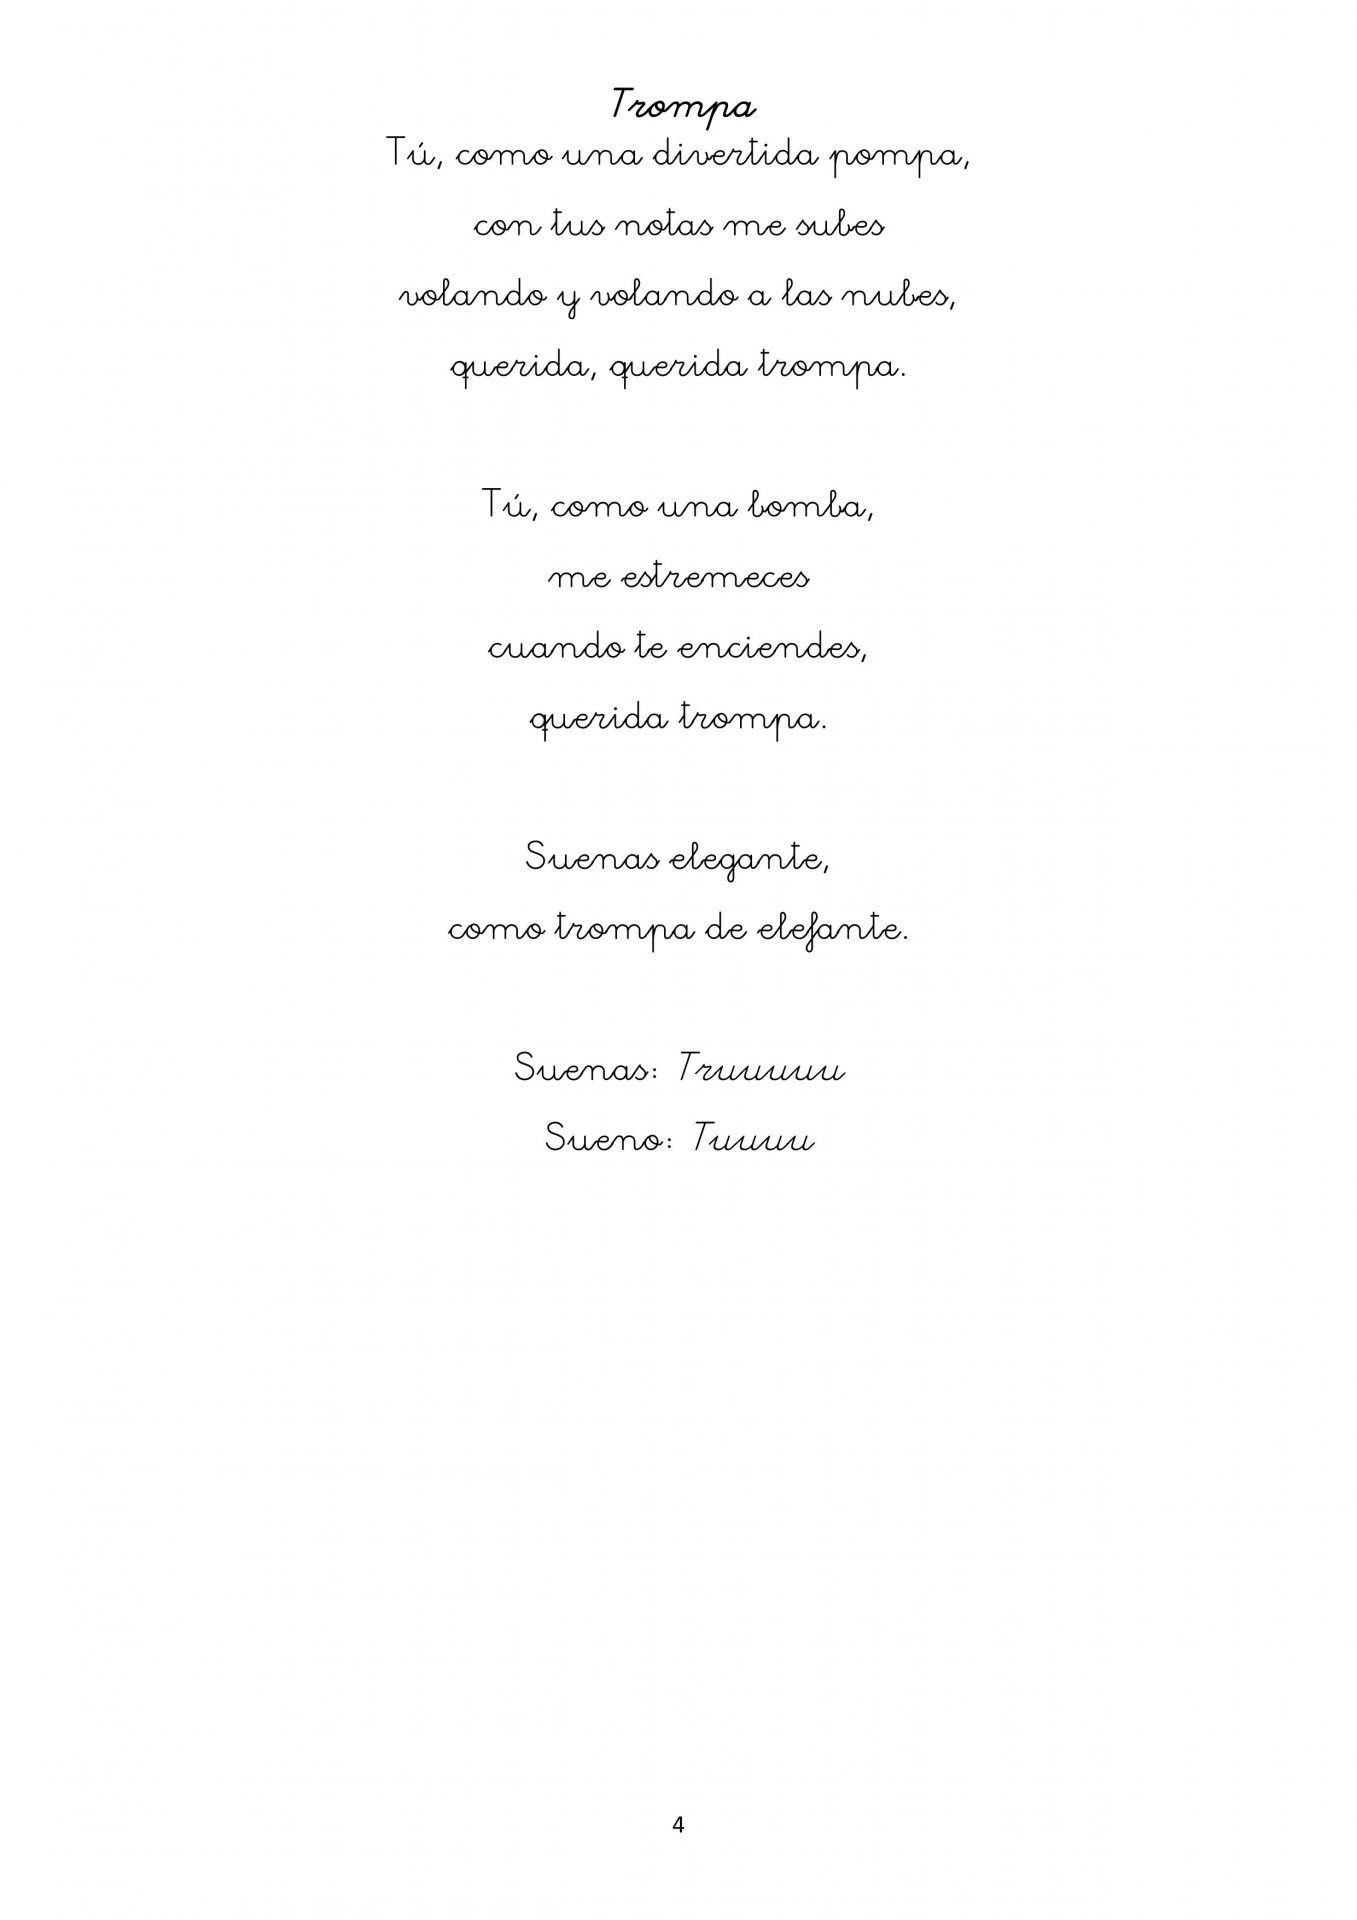 Trompa
Tú, como una divertida pompa,
con tus notas me subes
volando y volando a las nubes,
querida, querida trompa.
Tú, como una bomba,
me estremeces
cuando te enciendes,
querida trompa.
Suenas elegante,
como trompa de elefante.
Suenas: Truuuuu
Sueno: Tuuuu
4